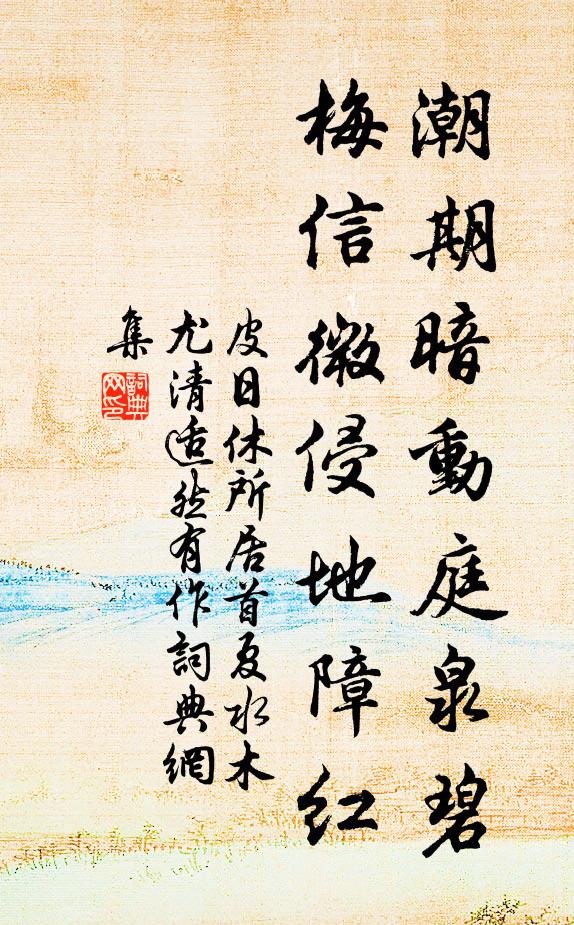 潮期暗動庭泉碧
梅信微侵地障紅
皮日休所居首夏水木
尤清適然有作詞典網
集
詞典
网印